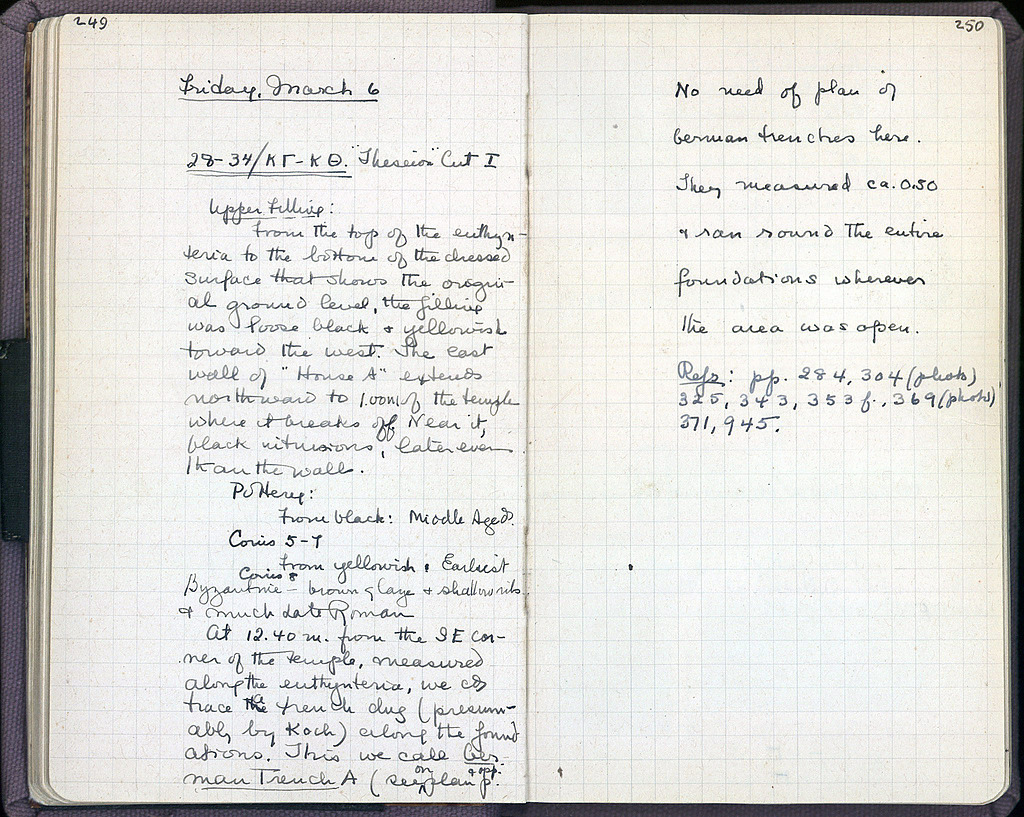 249
Friday, March 6
28-34/ΚΓ-ΚΘ. "Theseion" Cut I
Upper Filling:
From the top of the euthyn-
teria to the bottom of the dressed
surface that shows the origin-
al ground level, the filling
was loose black & yellowish
toward the west. The east
wall of "House A" extends
northward to 1.00m of the temple
where it breaks off. Near it,
black intrusions, later even
than the wall.
Pottery:
From black: Middle Aged.
Coins 5-7
From yellowish: Earliest
Coins 8
Byzantine - brown glaze & shallow ribs
& much late Roman
At 12.40 m. from the SE cor-
ner of the temple, measured
along the euthynteria, we cd
trace the trench dug (presum-
ably by Koch) along the found
ations. This we call Ger-
man Trench A (see on plan & opp. p.
250
No need of plan of
German trenches here.
They measured ca. 0.50
& ran round the entire
foundations wherever
the area was open.
Refs: pp. 284, 304 (photo)
325, 343, 353 f., 369 (photo)
371, 945.